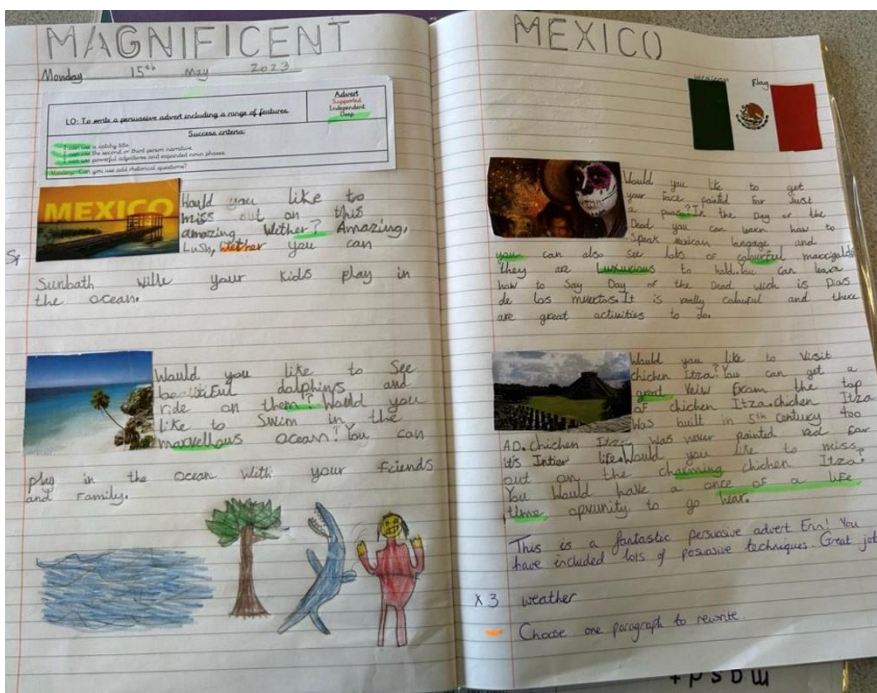 MAGNIFICENT
Monday 15th May 2023
LO: To write a persuasive advert including a range of features.
Advert
Supported
Independent
Deep
Success criteria:
I can use a catchy title.
I can use the second or third person narrative.
I can use powerful adjectives and expanded noun phrases.
Can you use add rhetorical questions?
MEXICO
Would you like to
miss out on this
amazing wether? Amazing,
Lush, wether you can
Sp
Sunbath wille your kids play in
the ocean.
Would you like to See
dolphins and
ride on them? Would you
like to Swim in the
marvellous ocean? You can
play in the ocean with your friends
and family.
MEXICO
mexican Flag
Would you like to get
your face painted for Just
a In the Day or the
Dead you can learn how to
Speak mexican and
you can also see lots of colourful
they are Luxurious to hold. You can learn
how to Say Day or the Dead wich is Dias
de los muertos. It is really colourful and there
are great activities to do.
Would you like to Visit
chicken Itza? You can get a
great from the top
of chicken Itza. chicken Itza
was built in 5th century too
AD. chicken Itza was never painted red for
it's Intier life. Would you like to miss
out on the charming chicken Itza?
You would have a once of a life
time to go hear.
This is a fantastic persuasive advert Erin! You
have included lots of persuasive techniques. Great job
x 3 weather
Choose one paragraph to rewrite.